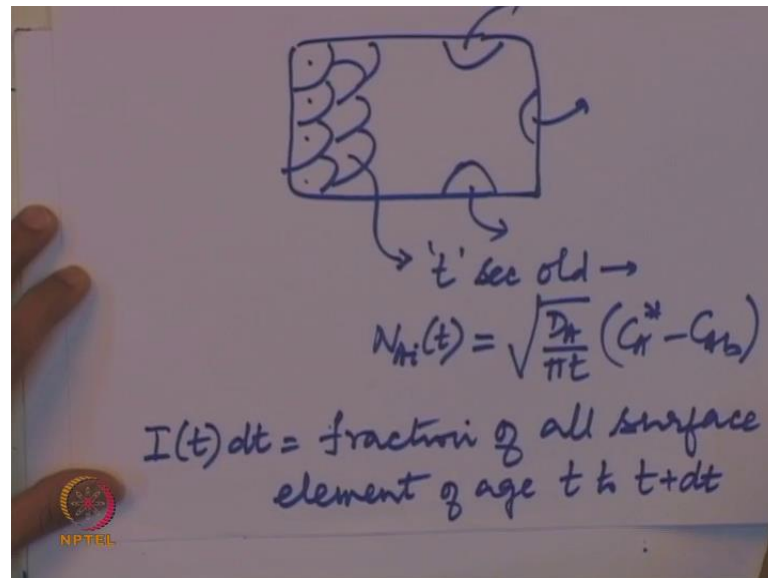 't' sec old →
N_Ai(t) = √(D_A/πt) (C_A* - C_Ab)
I(t) dt = fraction of all surface
element of age t to t+dt
NPTEL